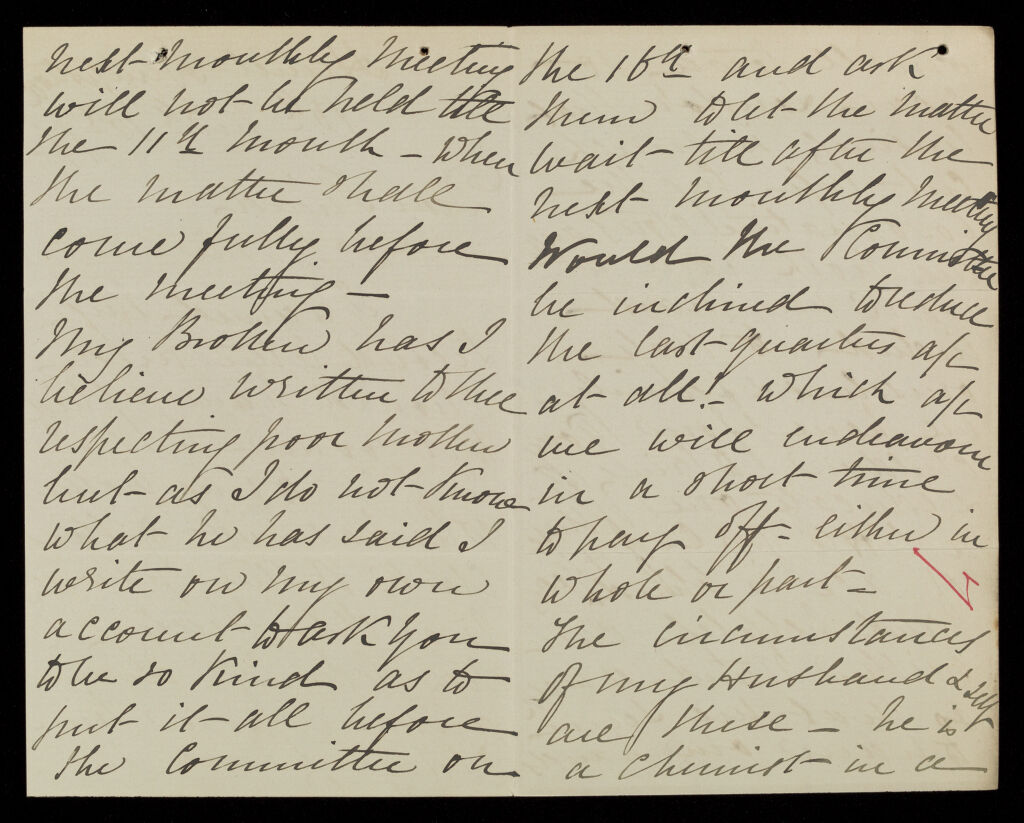 next Monthly Meeting
will not be held till
the 11th Month – when
the matter shall
come fully before
the meeting –
My Brother has I
believe written to thee
respecting poor Mother
but as I do not know
what he has said I
write on my own
account to ask you
to be so kind as to
put it all before
the Committee on
the 16th and ask
them to let the matter
wait till after the
next monthly meeting
Would the Committee
be inclined to reduce
the last quarters a/c
at all! – which a/c
we will endeavour
in a short time
to pay off – either in
whole or part –
The circumstances
of my Husband & self
are these – he is
a chemist in a